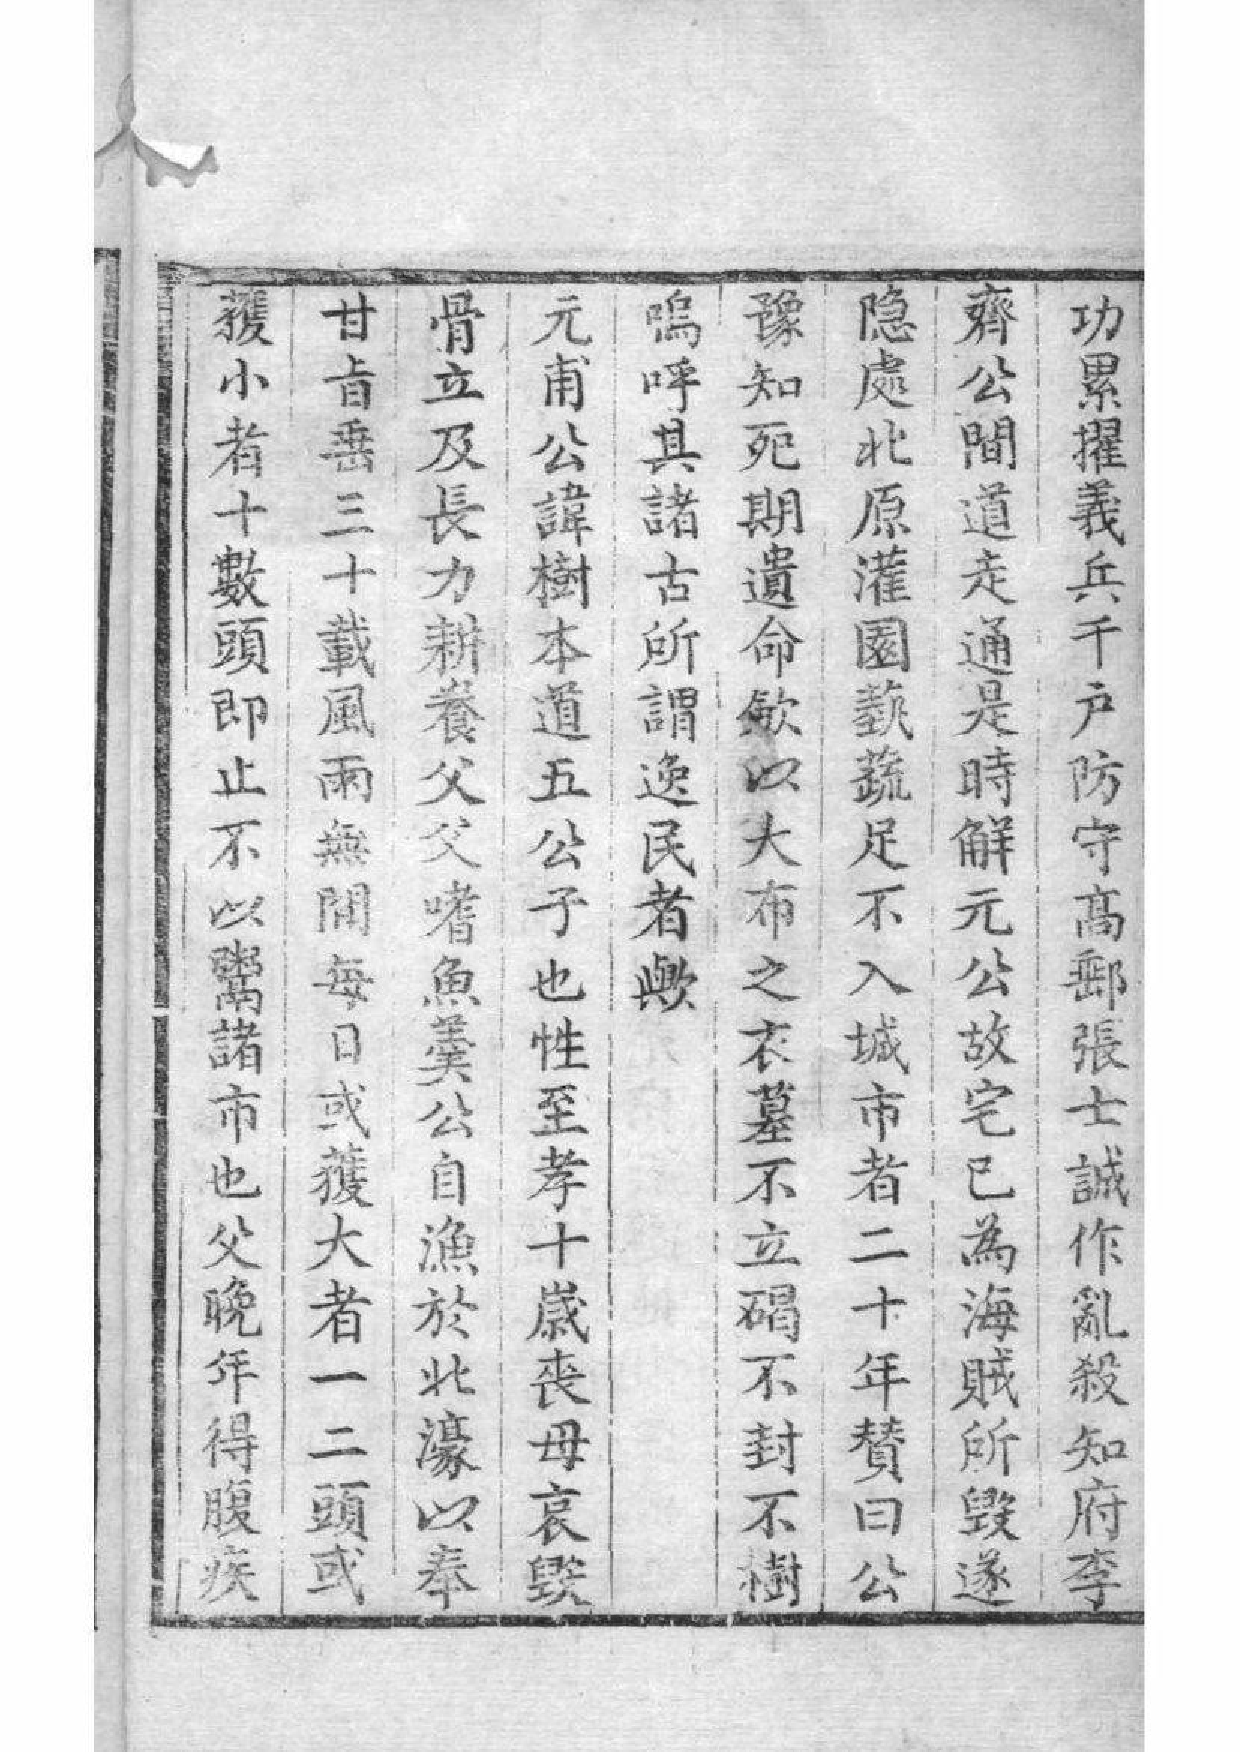 功累擢義兵千户防守髙郵張士誠作亂殺知府李
齊公間道走通是時解元公故宅已為海賊所毀遂
隐處北原灌園藝蔬足不入城市者二十年賛曰公
豫知死期遺命斂以大布之衣墓不立碣不封不樹
嗚呼其諸古所謂逸民者歟
元甫公諱樹本道五公子也性至孝十歲喪母哀毀
骨立及長力耕養父父嗜魚羹公自漁於北濠以奉
甘旨垂三十載風雨無間每日或獲大者一二頭或
獲小者十數頭即止不以鬻諸市也父晚年得腹疾